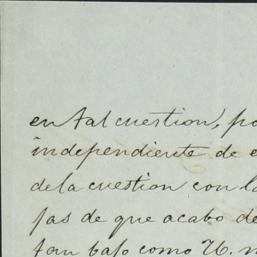 en tal cuestion, po
independiente de e
dela cuestion con la
jas de que acabo de
tan bajo como U. n